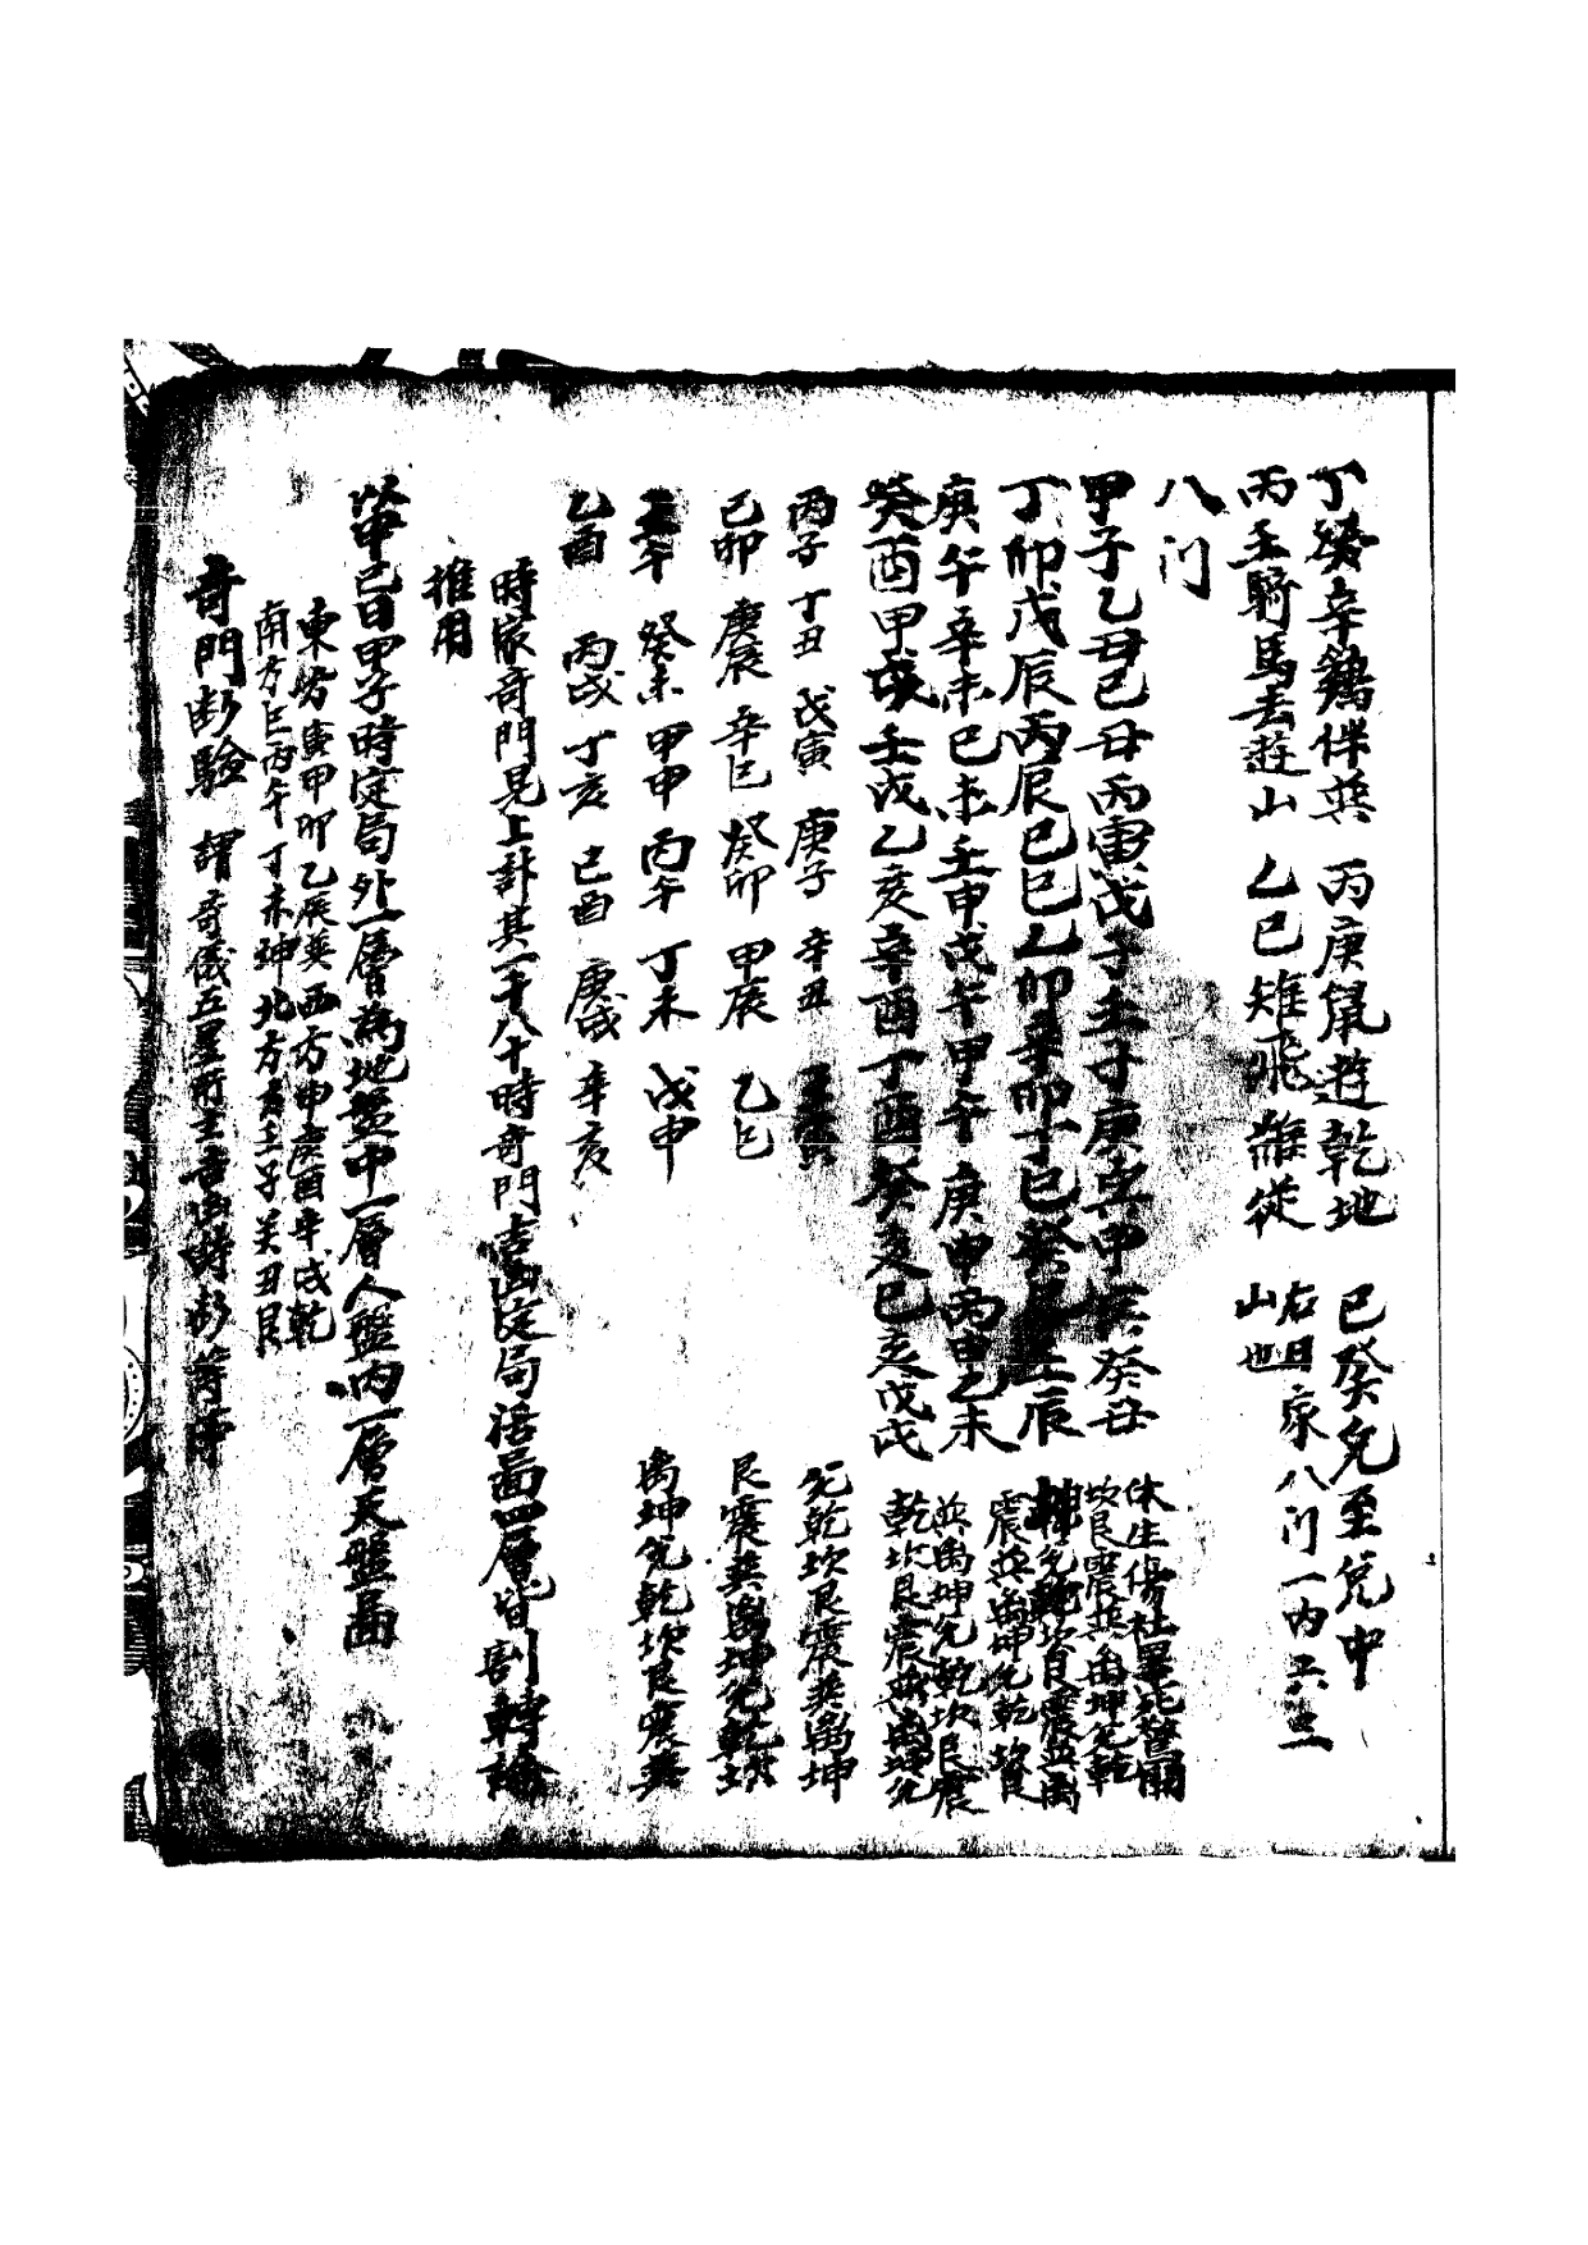 丁癸辛鷄伴巽　丙庚鼠遊乾地　己癸兔至兌中
丙壬騎馬去遊山　乙己雉飛離從　右日家八门一内
山也
八门
甲子乙丑己丑丙寅戊子壬子庚寅甲寅癸丑　休生傷杜景死驚開
坎艮震巽离坤兌乾
丁卯戊辰丙辰己巳乙卯辛卯丁巳癸壬辰　坤兌乾坎艮震巽离
震巽离坤兌乾坎艮
庚午辛未己未壬申戊午甲午庚申丙申乙未　巽离坤兌乾坎艮震
癸酉甲戌壬戌乙亥辛酉丁酉癸亥己亥戊戌　乾坎艮震巽离坤兌
丙子　丁丑　戊寅　庚子　辛丑　壬寅　兌乾坎艮震巽离坤
己卯　庚辰　辛巳　癸卯　甲辰　乙巳　艮震巽离坤兌乾坎
壬午　癸未　甲申　丙午　丁未　戊申　离坤兌乾坎艮震巽
乙酉　丙戌　丁亥　己酉　庚戌　辛亥
時家奇門見上計其一千八十時奇門吉凶定局活啚四層皆割轉論
推用
甲己日甲子時定局外一層為地盤中一層人盤内一層天盤啚
東方寅甲卯乙辰巽西方申庚酉辛戌乾
南方巳丙午丁未坤北方亥壬子癸丑艮
奇門断驗　謂奇儀五星所主吉凶時